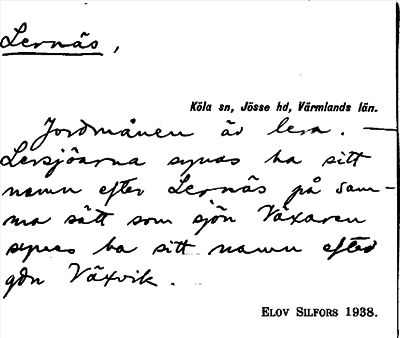 Lernäs,
Köla sn, Jösse hd, Värmlands län.
Jordmånen är lera. —
Lersjöarna synas ha sitt
namn efter Lernäs på sam-
ma sätt som sjön Växaren
synes ha sitt namn efter
gdn Växvik.
ELOV SILFORS 1938.